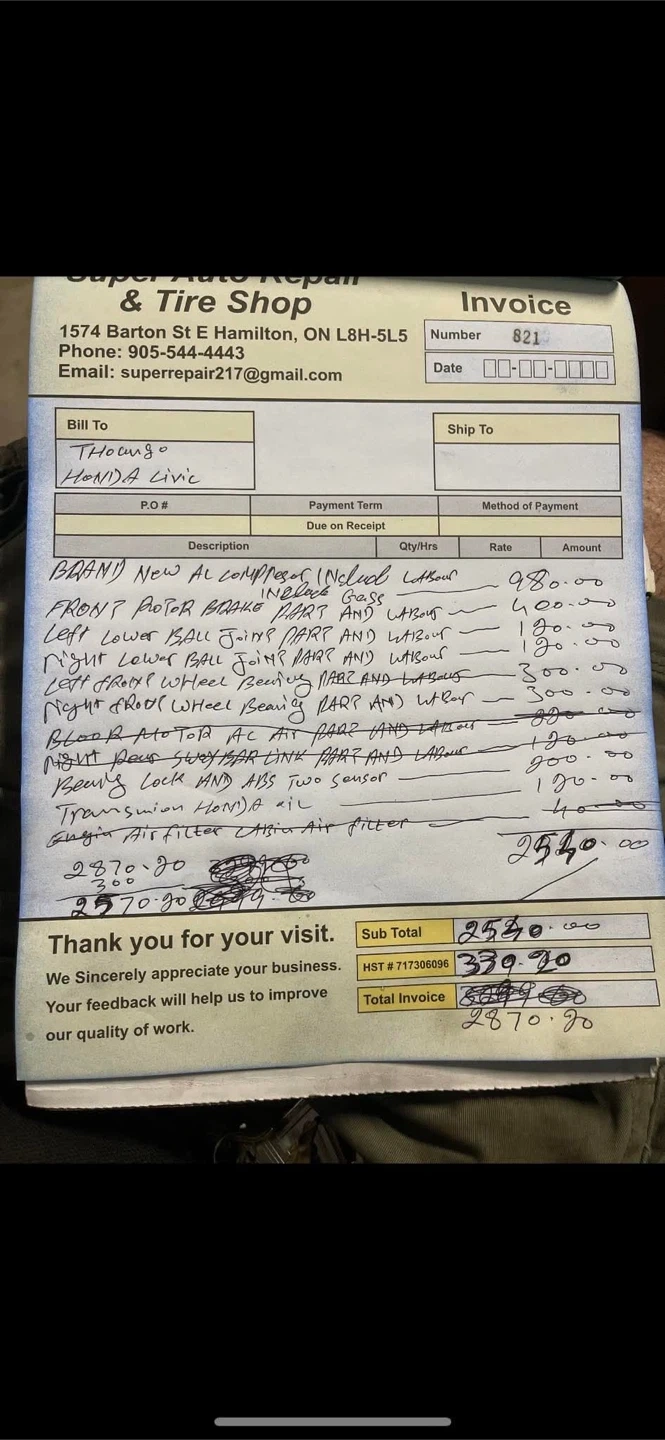 Super Auto Repair
& Tire Shop
Invoice
1574 Barton St E Hamilton, ON L8H-5L5
Phone: 905-544-4443
Email: superrepair217@gmail.com
Number 821
Date
Bill To
Ship To
THoungo
HONDA Civic
P.O # Payment Term Method of Payment
Due on Receipt
Description Qty/Hrs Rate Amount
BRAND New AC comppesor INclud LABour 980.00
INclude Gass
FRONT ROTOR BRAKE PART AND LABour 400.00
Left Lower BALL JoinT PART AND LABour 120.00
right Lower BALL JoinT PART AND LABour 120.00
Left fRonT wheel Bearing PART AND LABour 300.00
right fRonT wheel Bearig PART AND LABor 300.00
BLooR MoToR AC Air PART AND LABour 220.00
right Rear SWAYBAR LINK PART AND LABour 120.00
Bearig Lock AND ABS Two sensor 200.00
Transmion HONDA oil 120.00
Engin Air filter CABin Air filter 40.00
2540.00
2870.20
300
2570.20
Thank you for your visit.
We Sincerely appreciate your business.
Your feedback will help us to improve
our quality of work.
Sub Total 2540.00
HST # 717306096 330.20
Total Invoice
2870.20